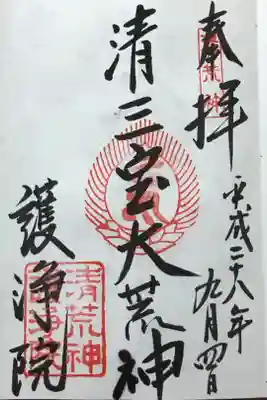 奉拝
平成二十八年
九月四日
清三宝大荒神
清荒神
護浄院